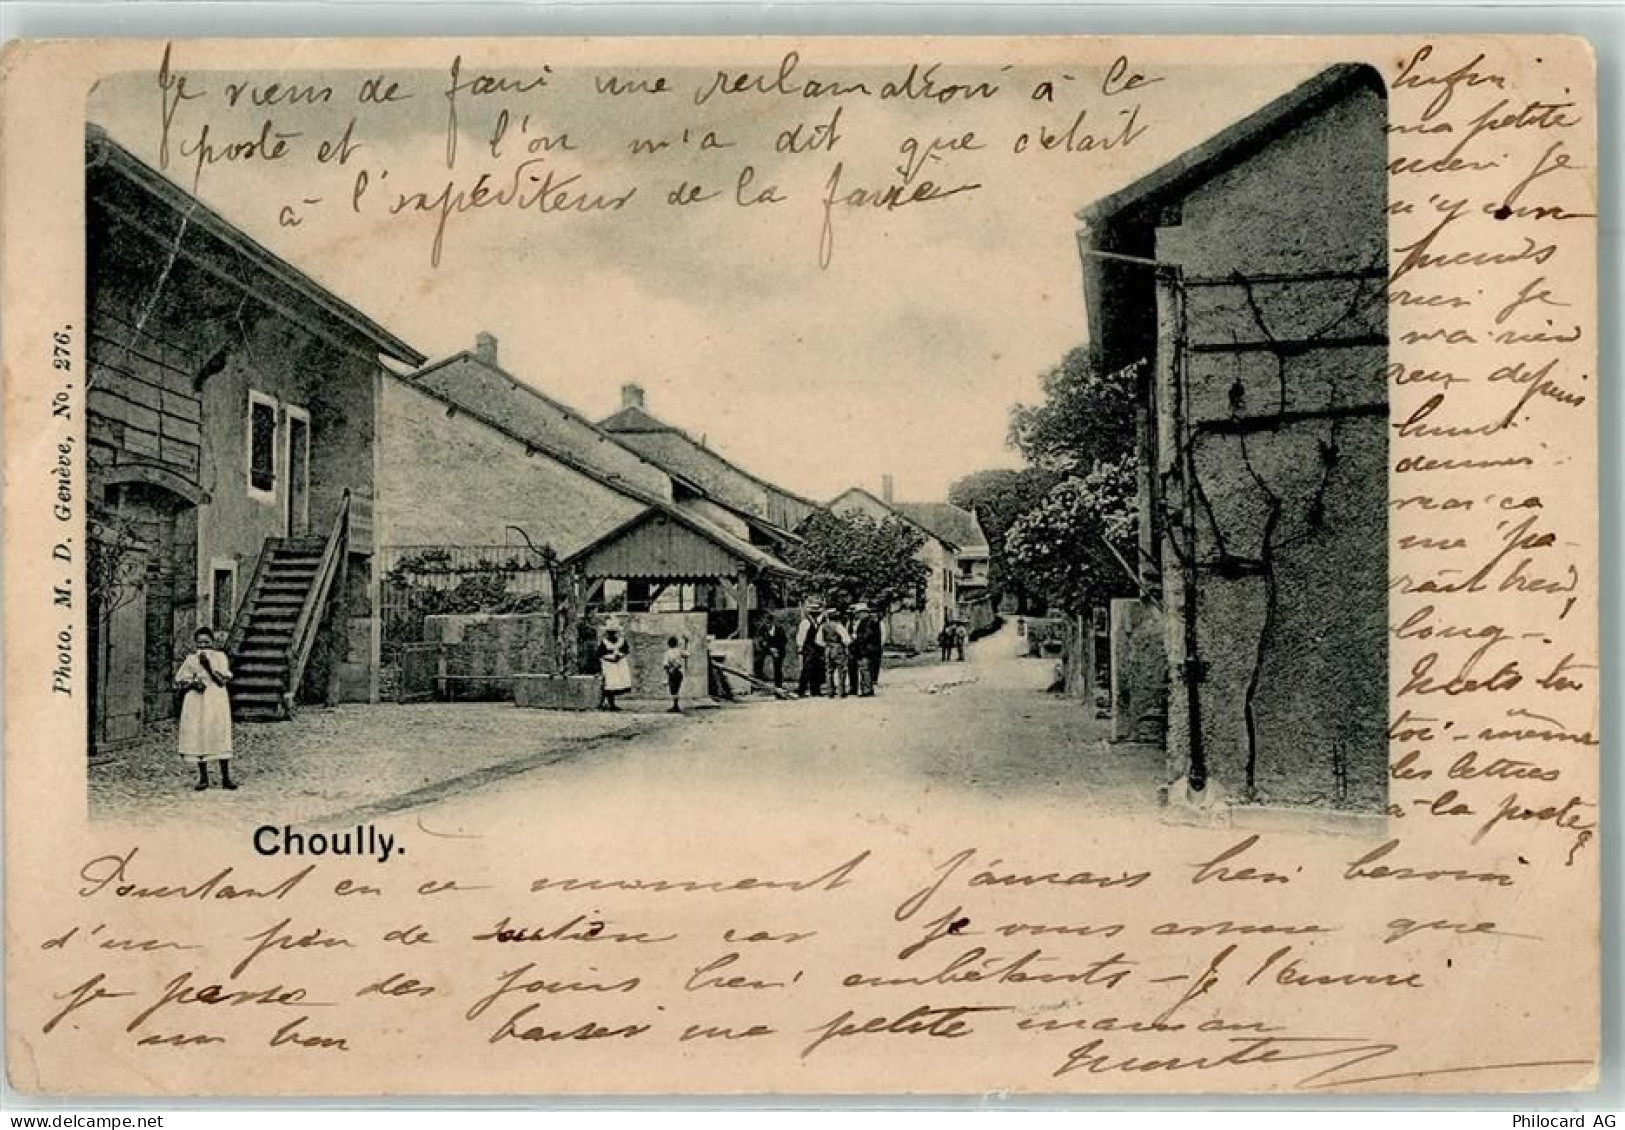 Je viens de faire une reclamation à la
poste et l'on m'a dit que c'était
à l'expéditeur de la faire
Enfin
ma petite
mère je
n'y
rien je
rien depuis
lundi
dernier.
mais ça
me pa-
raît bien
long.
Mets tu
toi-même
les lettres
à la poste?
Photo. M. D. Genève, No. 276.
Choully.
Pourtant en ce moment J'amais bien besoin
d'un peu de car je vous assure que
je passe des jours bien embêtants - Je t'envoie
un bon baiser ma petite maman